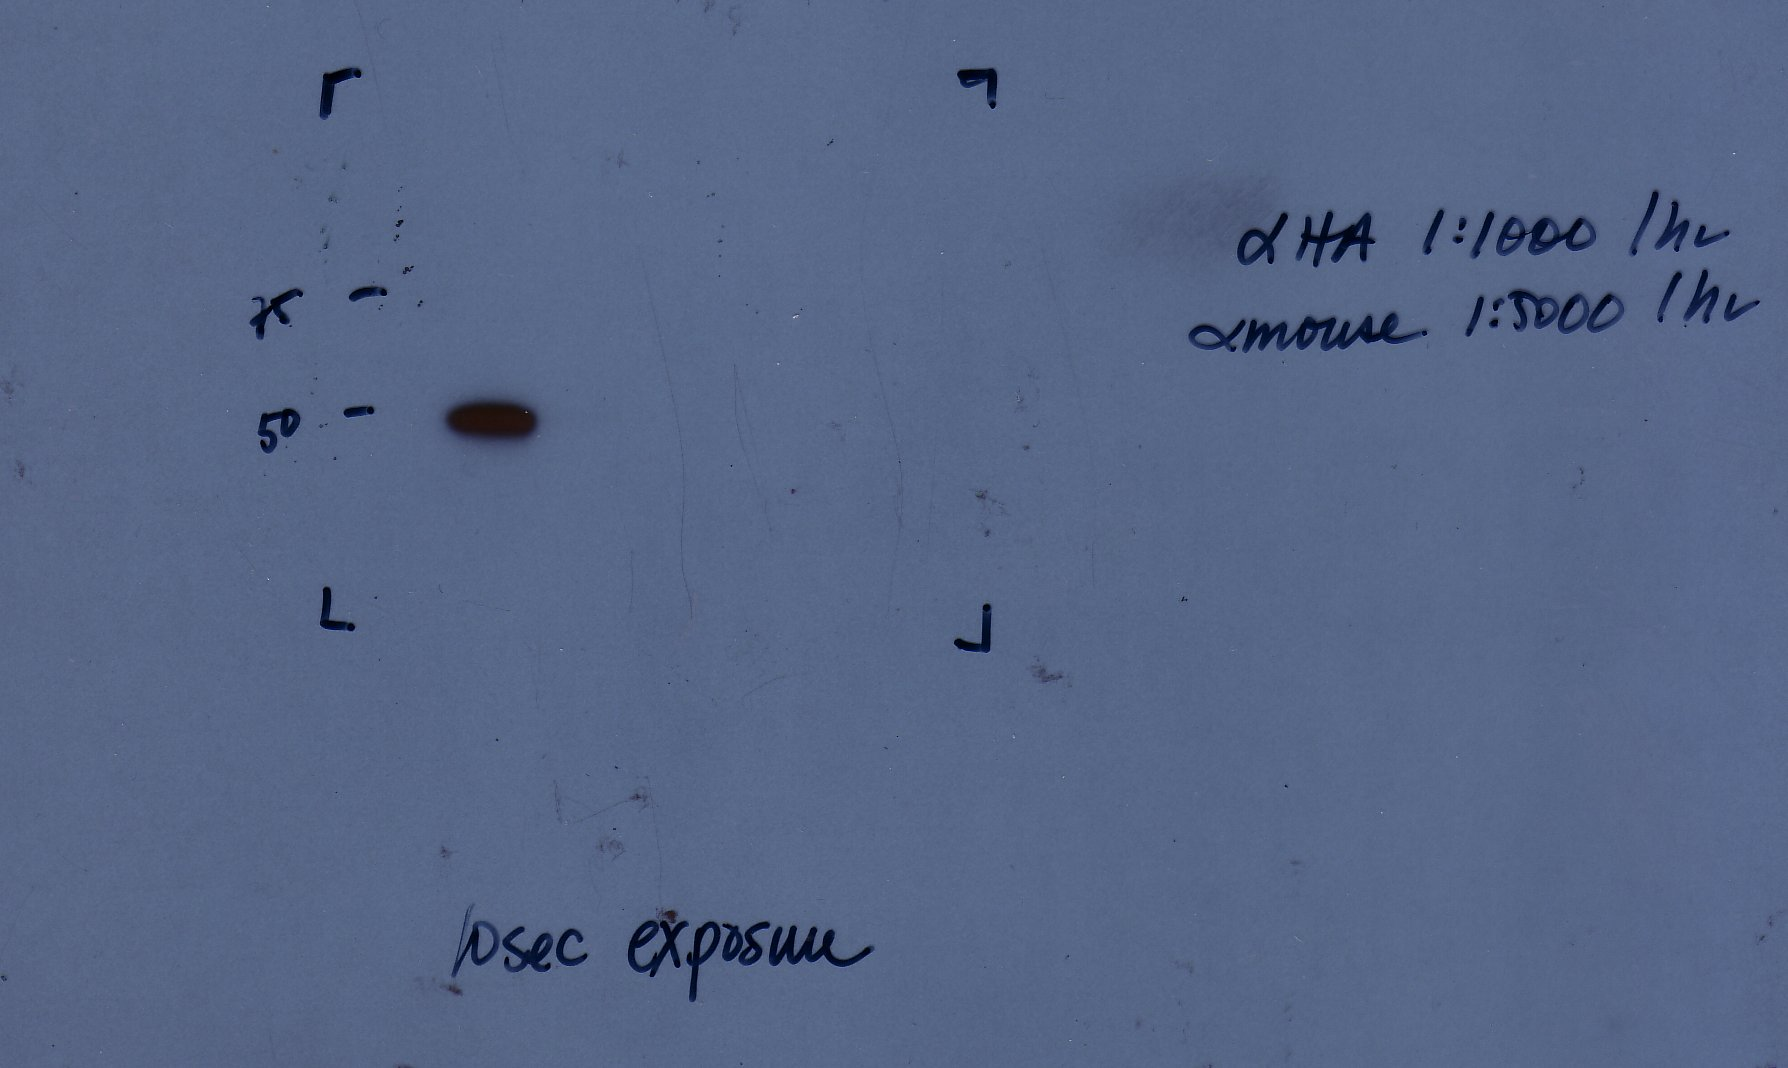 αHA 1:1000 1hr
αmouse 1:5000 1hr
75 -
50 -
10sec exposure